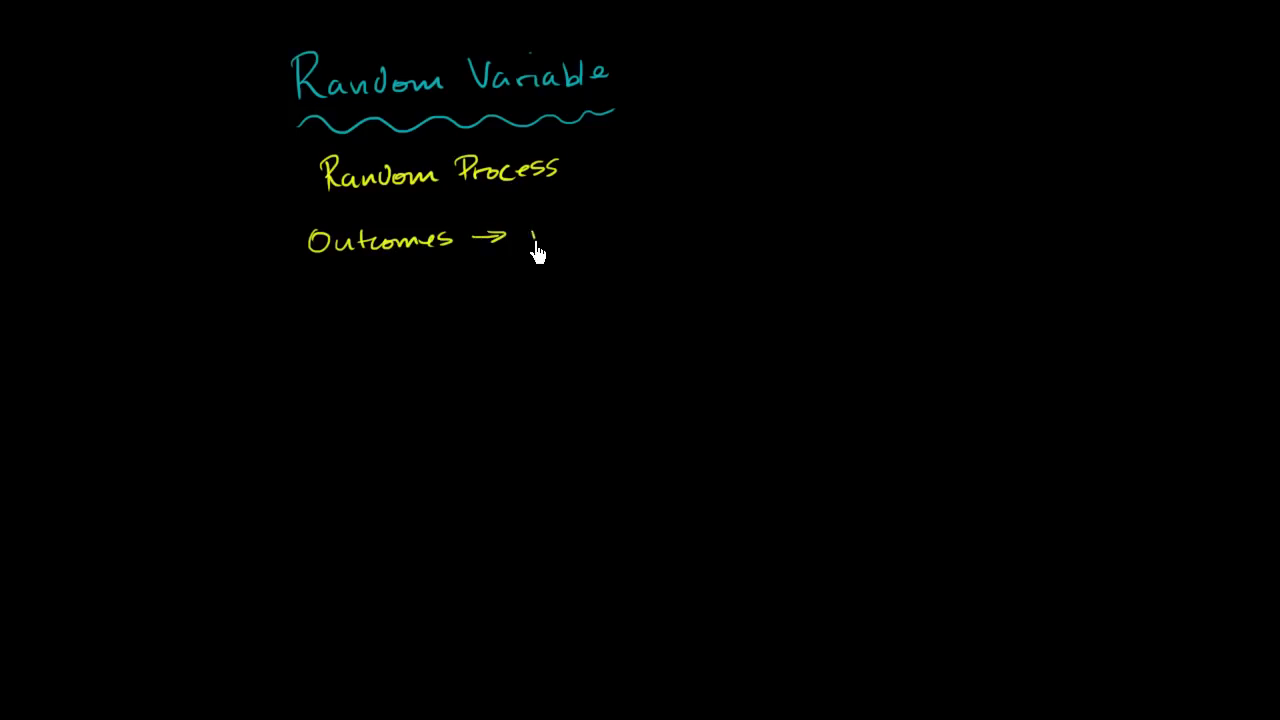 Random Variable
Random Process
Outcomes →